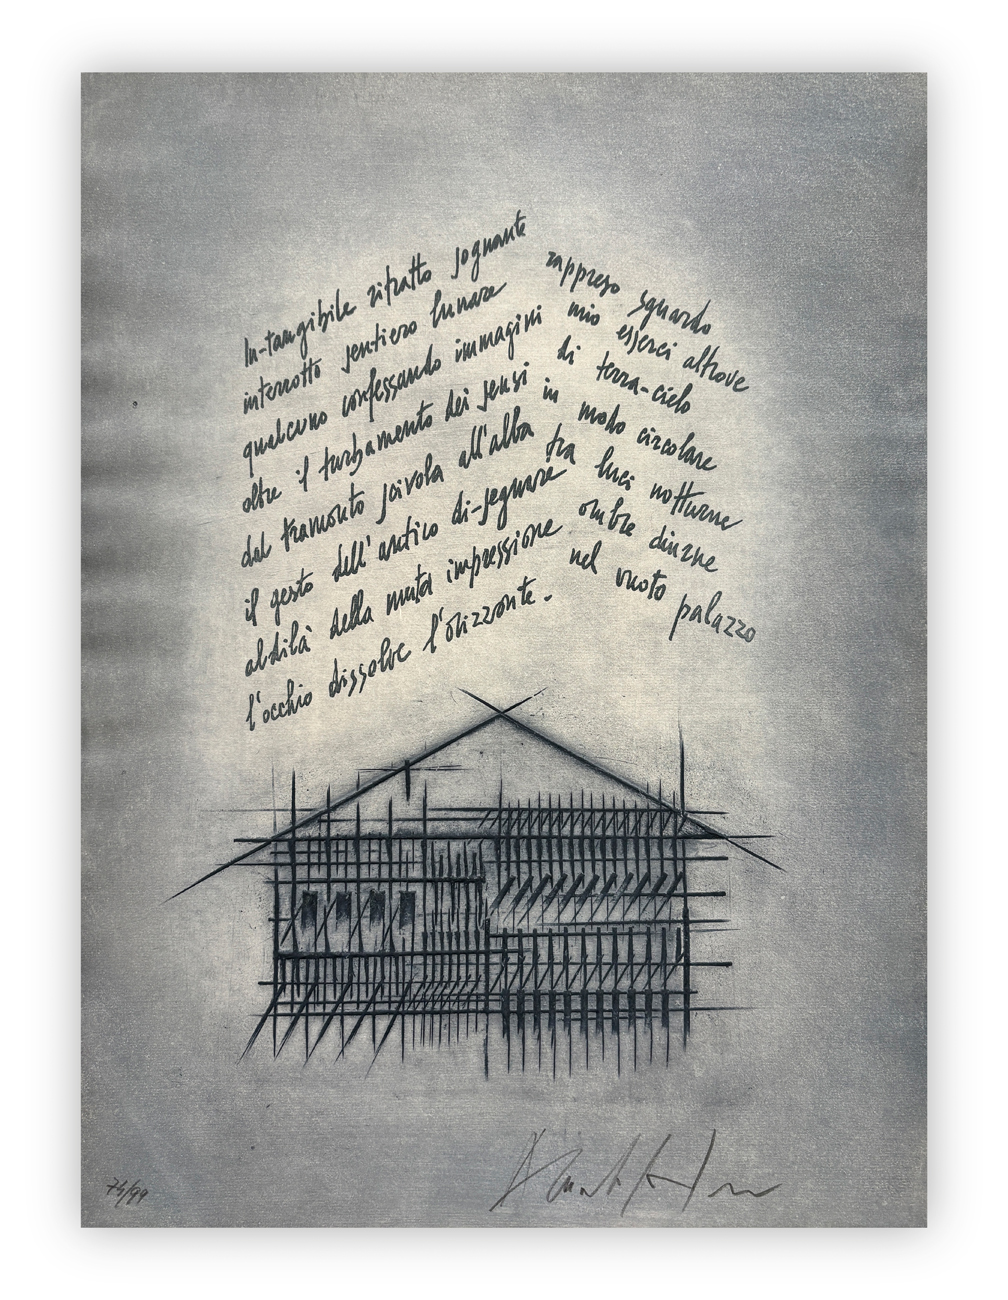 In-tangibile ritratto sognante
interrotto sentiero lunare
qualcuno confessando immagini
oltre il turbamento dei sensi
dal tramonto scivola all'alba
il gesto dell'antico di-segnare
aldilà della muta impressione
l'occhio dissolve l'orizzonte.
rappreso sguardo
mio esserci altrove
di terra-cielo
in modo circolare
fra luci notturne
ombre diurne
nel vuoto palazzo
74/99